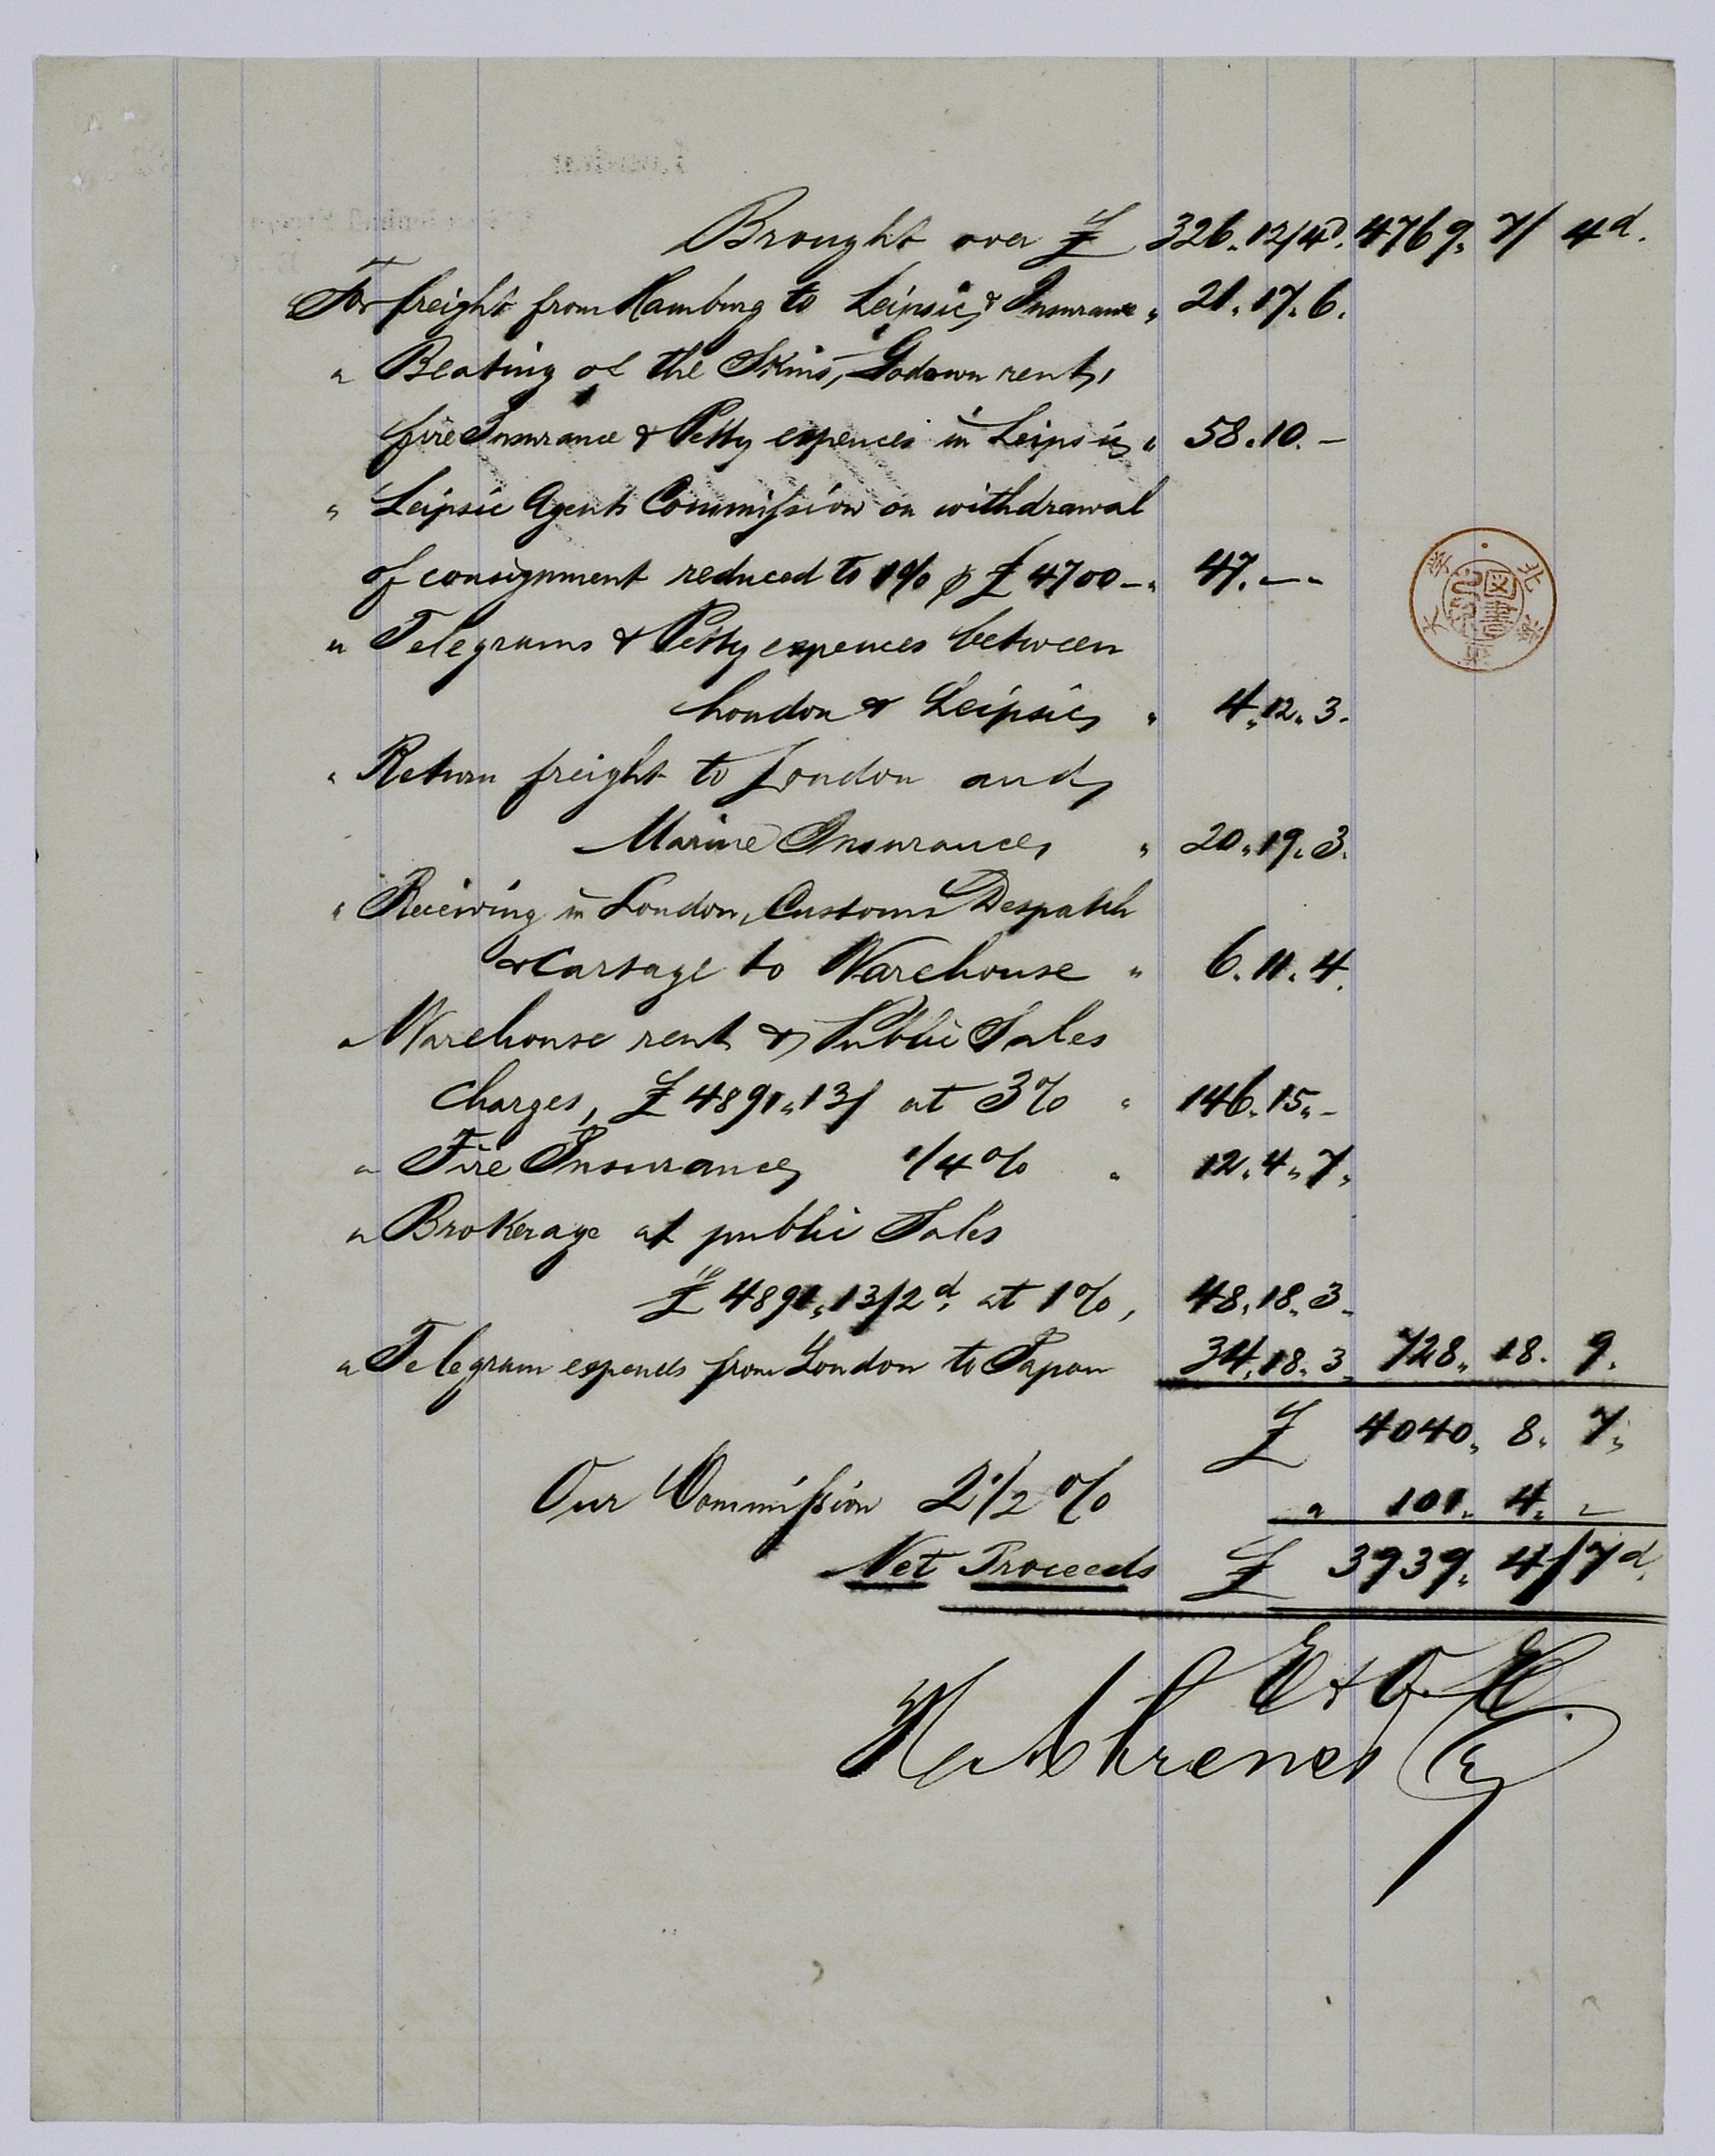 Brought over £ 326. 12/4d. 4769. 7/ 4d.
For freight from Hamburg to Leipsic & Insurance " 21. 17. 6.
" Beating of the Skins, Godown rent,
fire Insurance & Petty expences in Leipsic " 58. 10. –
" Leipsic Agents Commission on withdrawal
of consignment reduced to 1% p £ 4700 – " 47. – –
" Telegrams & Petty expences between
London & Leipsic " 4. 12. 3.
" Return freight to London and
Marine Insurance " 20. 19. 3.
" Receiving in London, Customs Despatch
& Cartage to Warehouse " 6. 11. 4.
" Warehouse rent & Public Sales
Charges, £ 4891. 13/ at 3% " 146. 15. –
" Fire Insurance 1/4% " 12. 4. 7.
" Brokerage at public Sales
£ 4891. 13/2d. at 1%, 48. 18. 3.
" Telegram expences from London to Japan 34. 18. 3. 728. 18. 9.
£ 4040. 8. 7.
Our Commission 2 1/2 % " 101. 4. –
Net Proceeds £ 3939. 4/7d.
E & O. E.
H Ahrens Co
北海
大学
図書